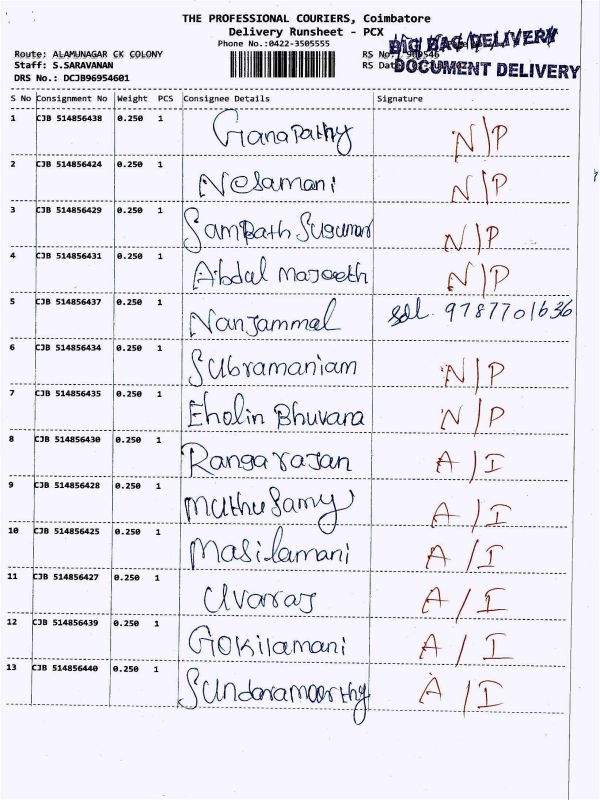 THE PROFESSIONAL COURIERS, Coimbatore
Delivery Runsheet - PCX
Phone No.:0422-3505555
BIG BAG DELIVERY
Route: ALAMUNAGAR CK COLONY
RS No.
Staff: S.SARAVANAN
RS Dat
DOCUMENT DELIVERY
DRS No.: DCJB96954601
S No Consignment No Weight PCS Consignee Details Signature
1 CJB 514856438 0.250 1 Ganapathy N/P
2 CJB 514856424 0.250 1 Nesamani N/P
3 CJB 514856429 0.250 1 Sampath Sugumar N/P
4 CJB 514856431 0.250 1 Abdul Majeeth N/P
5 CJB 514856437 0.250 1 Nanjammal 9787701636
6 CJB 514856434 0.250 1 Subramaniam N/P
7 CJB 514856435 0.250 1 Eholin Bhuvana N/P
8 CJB 514856430 0.250 1 Rangarajan A/I
9 CJB 514856428 0.250 1 Muthusamy A/I
10 CJB 514856425 0.250 1 Masilamani A/I
11 CJB 514856427 0.250 1 Uvaraj A/I
12 CJB 514856439 0.250 1 Gokilamani A/I
13 CJB 514856440 0.250 1 Sundaramoorthy A/I